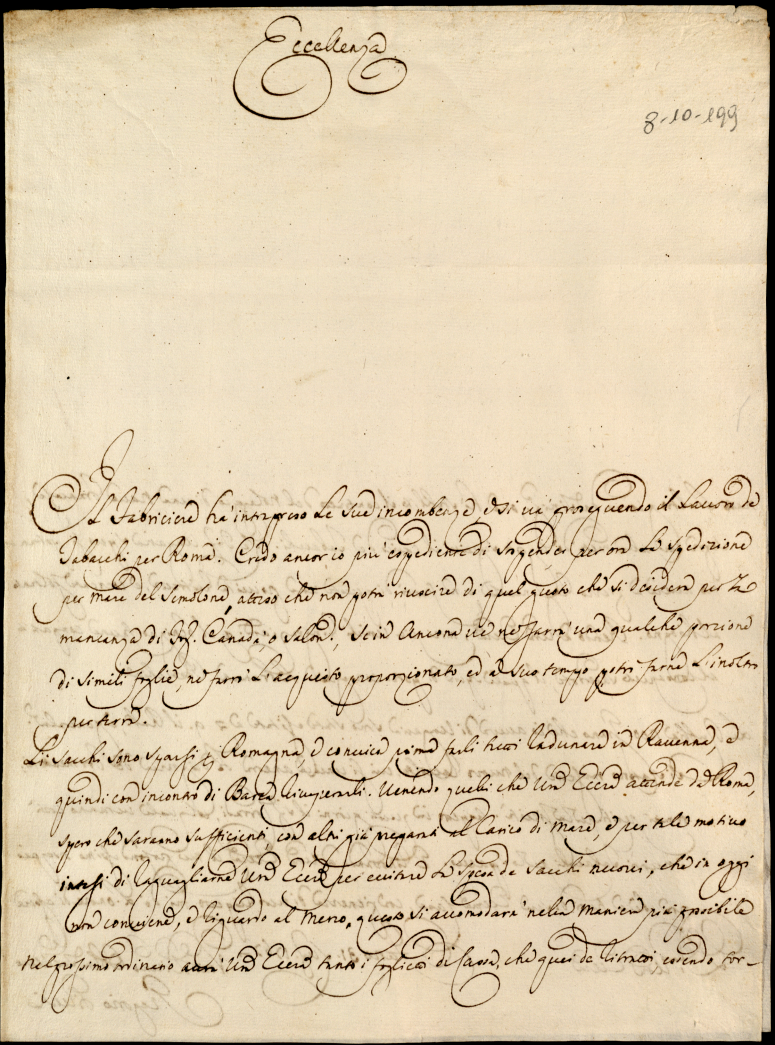 Eccellenza
8-10-199
Il Fabriciere hà intrapreso le sue incombenze, e si và proseguendo il Lavoro de
Tabacchi per Roma. Credo ancor io più espediente di sospender per ora la spedizione
per mare del Semolone, atteso che non potrà riuscire di quel gusto che si desidera per la
mancanza di Canadà, o Salon.; Se in Ancona ve ne sarà una qualche porzione
di simili foglie, ne farò l'acquisto proporzionato, ed a suo tempo potrò farne l'inoltro
per terra.
Li sacchi sono sparsi Romagna, e convien prima farli tutti radunare in Ravenna, e
quindi con incontro di Barca ricuperarli. Venendo quelli che Vra Eccza attende da Roma,
spero che saranno sufficienti, con altri già preparati al Carico di Mare, e per tale motivo
intesi di ragguagliarne Vra Eccza per evitare la spesa de sacchi nuovi, che in oggi
non conviene, e riguardo al Merco, questo si accomodarà nella maniera più possibile
Nel prossimo ordinario avrà Vra Eccza tanto i foglietti di Cassa, che quei de ristretti, essendo tor-